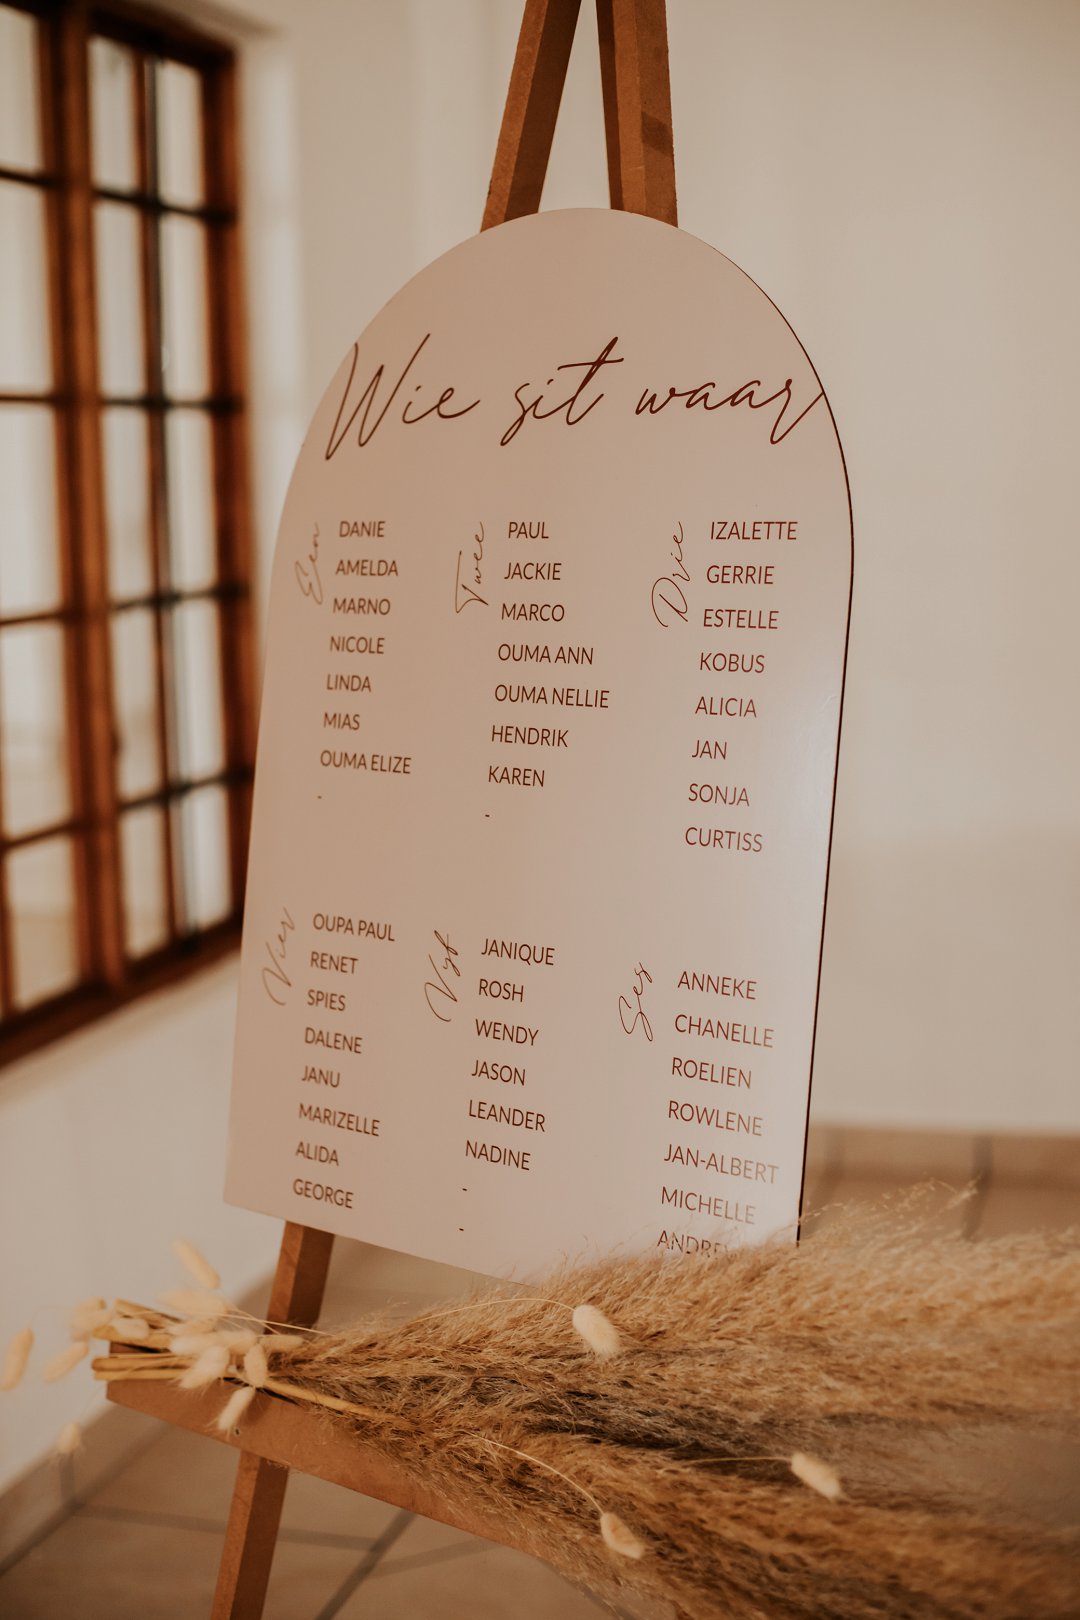 Wie sit waar
Een
DANIE
AMELDA
MARNO
NICOLE
LINDA
MIAS
OUMA ELIZE
-
Twee
PAUL
JACKIE
MARCO
OUMA ANN
OUMA NELLIE
HENDRIK
KAREN
-
Drie
IZALETTE
GERRIE
ESTELLE
KOBUS
ALICIA
JAN
SONJA
CURTISS
Vier
OUPA PAUL
RENET
SPIES
DALENE
JANU
MARIZELLE
ALIDA
GEORGE
Vyf
JANIQUE
ROSH
WENDY
JASON
LEANDER
NADINE
-
-
Ses
ANNEKE
CHANELLE
ROELIEN
ROWLENE
JAN-ALBERT
MICHELLE